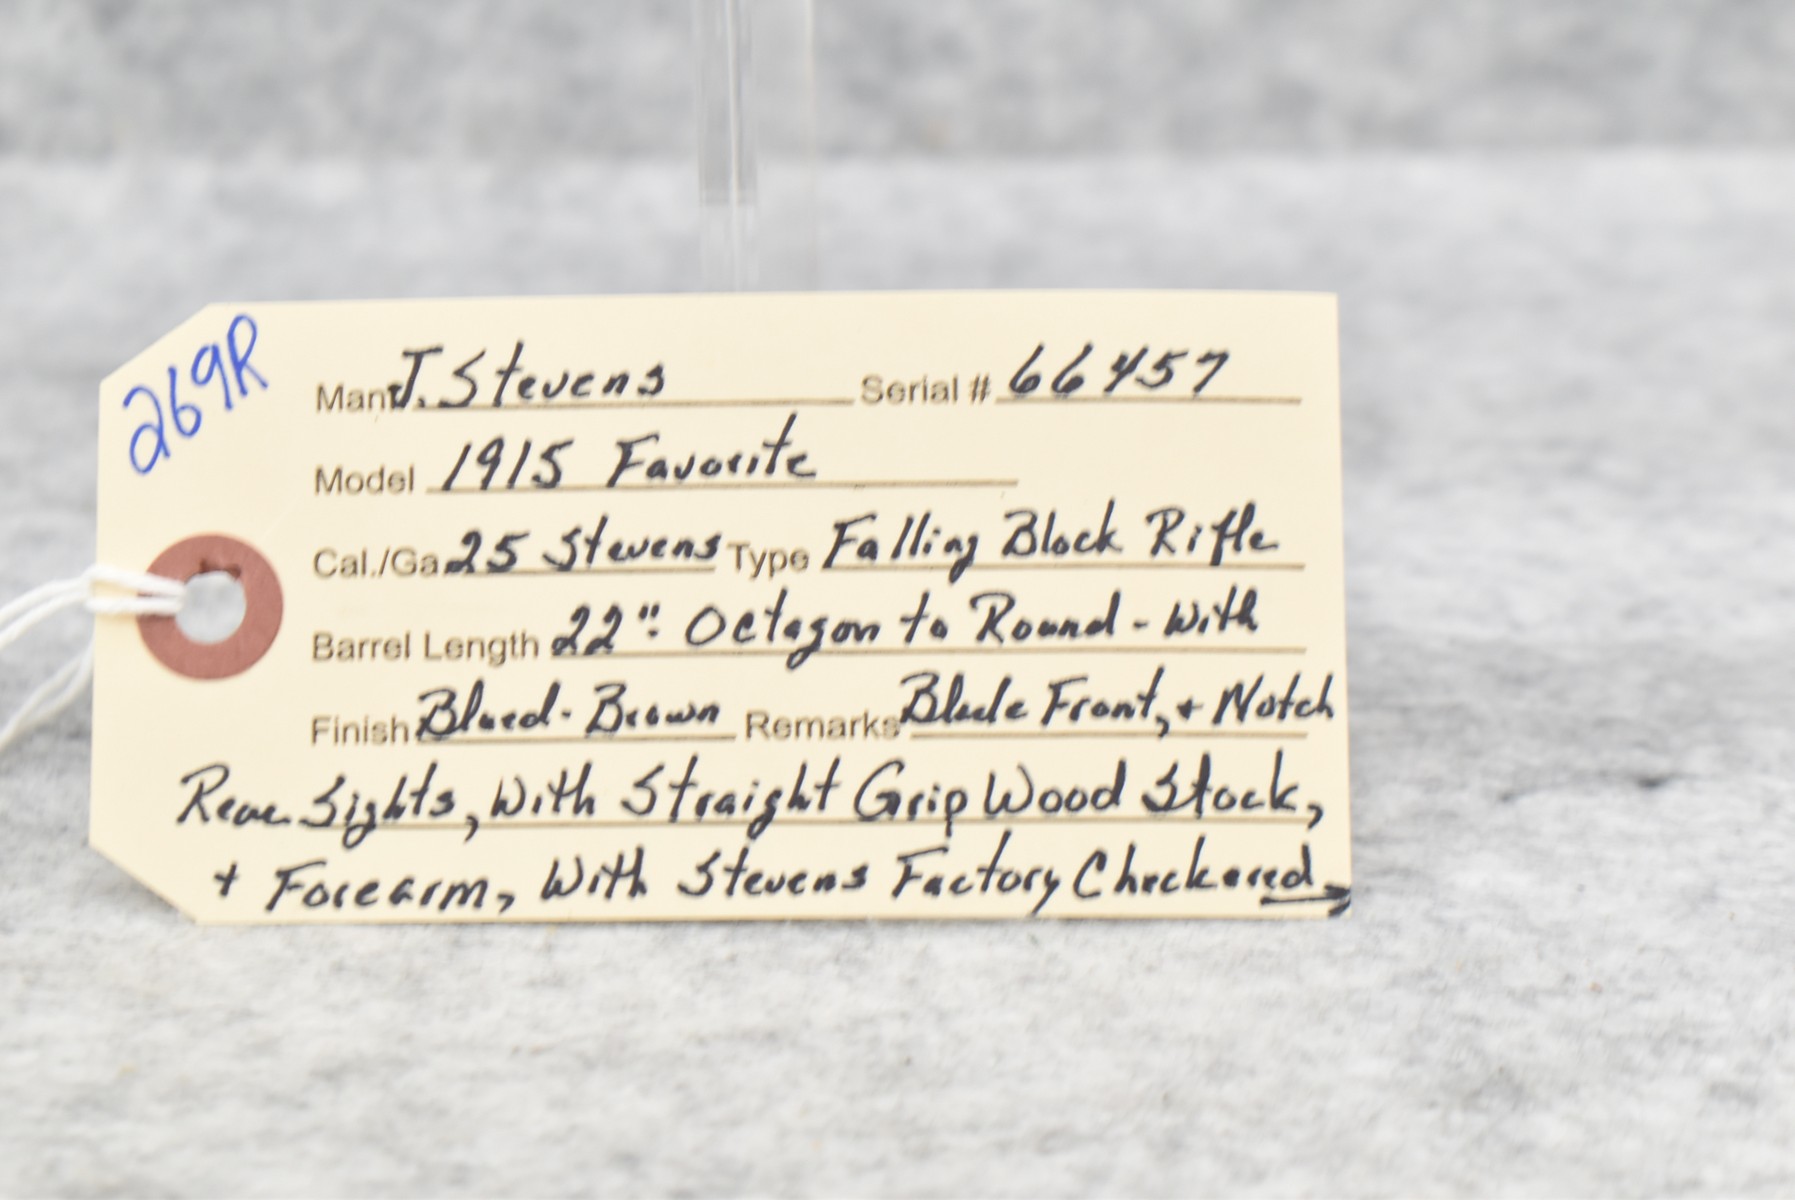 269R
Manf J. Stevens Serial # 66457
Model 1915 Favorite
Cal./Ga 25 Stevens Type Falling Block Rifle
Barrel Length 22": Octagon to Round - With
Finish Blued - Brown Remarks Blade Front, + Notch
Rear Sights, With Straight Grip Wood Stock,
+ Forearm, With Stevens Factory Checkered →